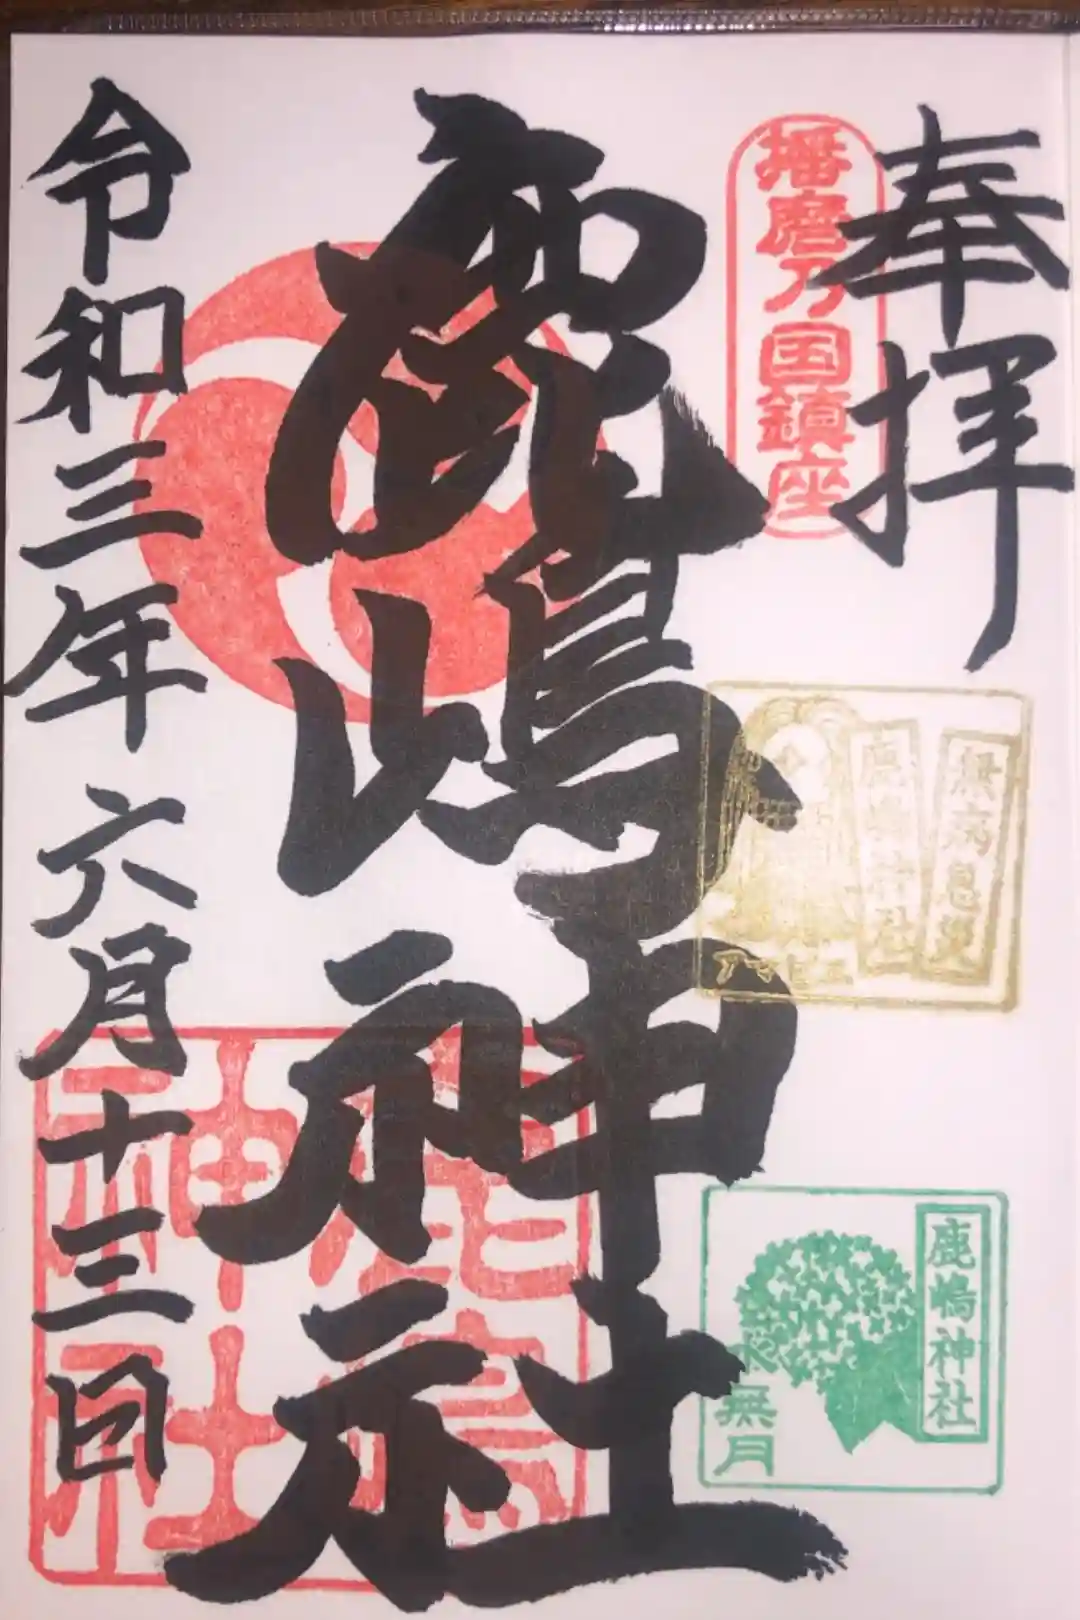 奉拝
播磨乃国鎮座
鹿嶋神社
令和三年六月十三日
鹿嶋神社
無病息災
鹿嶋神社
アマビエ
鹿嶋神社
水無月